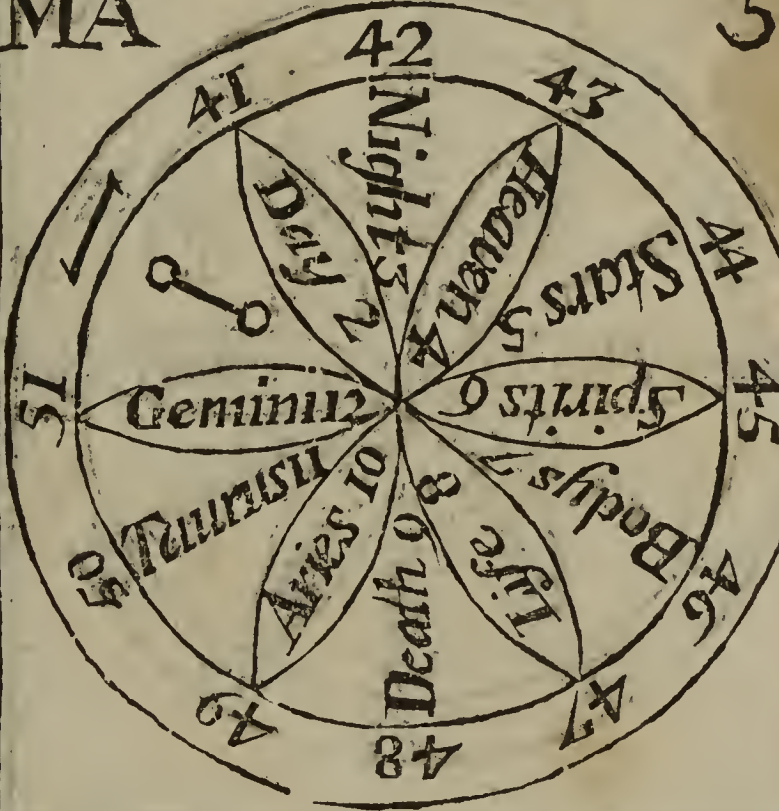 MA
5
41
42
43
44
45
46
47
48
49
50
51
Day 2
Night 3
Heaven 4
Stars 5
Spirits 6
Bodys 7
Life 8
Death 9
Aries 10
Taurus 11
Gemini 12